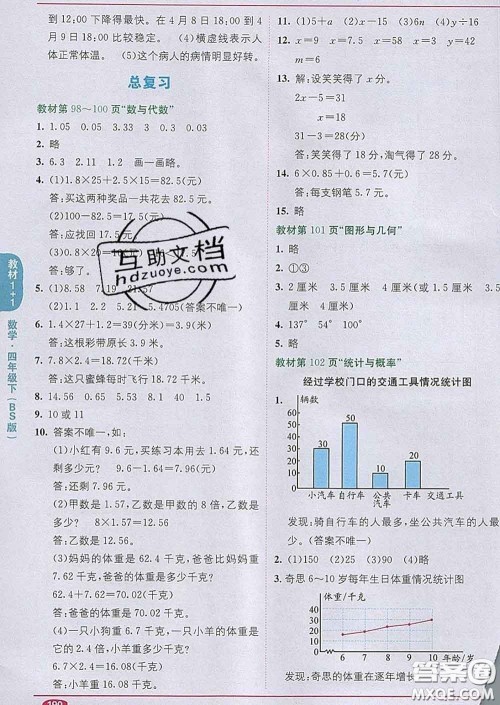 12:00下降得最快。在4月8日18:00到4月
9日18:00比较稳定。(4)横虚线表示人
体正常体温。(5)这个病人的病情明显好转。
总复习
教材第98～100页“数与代数”
1. 1.05 0.05 3.33 3 0.3 0.03
2. 略
3. 6.3 2.11 1.2 画一画略。
4. (1)1.8×25+2.5×15=82.5(元)
答:买这两种奖品一共花去82.5元。
(2)100-82.5=17.5(元)
答:应找回17.5元。
答:够了。
5.
(2)1.1 2.2 5.21 5.4705(答案不唯一)
6. 1.4×27+1.2=39(分米)
答:这根彩带原长3.9米。
7.
答:这只蜜蜂每时大约飞行18.72千米。
8. 14.56 0.65 5.13 4.4 2.53 0.99
9. 10或11
10. 答案不唯一,如:
(1)小红有9.6元,买练习本用去1.8元,还
剩多少元? 9.6-1.8=7.8(元)
答:还剩7.8元。
(2)甲数是1.57,乙数是甲数的8倍,乙数是
多少? 8×1.57=12.56
答:乙数是12.56。
(3)妈妈的体重是62.4千克,爸爸比妈妈重
7.6千克,爸爸的体重是多少千克?
62.4+7.6=70(千克)
答:爸爸的体重是70千克。
(4)一只小狗重6.7千克,一只小羊的体重是
它的2.4倍,小羊体重多少千克?
6.7×2.4=16.08(千克)
答:小羊重16.08千克。
190
教材1+1 数学·四年级下(BS版)
11. (1)5+a (2)4x (3)x-b (4)y÷16
12. =9 =7.5 =3.4 x=94 y=42
m=6
13. 解:设笑笑得了x分。
2x-5=31
x=18
31-3=28(分)
答:笑笑得了18分,淘气得了28分。
14. 6×0.85+0.6=5.7(元)
答:每支钢笔5.7元。
15. 略
教材第101页“图形与几何”
1. 略
2. ①③
3. 2厘米 3.5厘米 4厘米(或3.5厘米
3.5厘米 2.5厘米) 6 4 略
4. 137° 54° 100°
5. 略
教材第102页“统计与概率”
经过学校门口的交通工具情况统计图
1.
辆数
50
40
30
20
10
0
30
50
10
20
小汽车 自行车 公共汽车 卡车 交通工具
发现:骑自行车的人最多,坐公共汽车的人最
少。(答案不唯一)
2. (1)150 (2)25 (3)90 (4)略
3. 奇思6～10岁每年生日体重情况统计图
体重/千克
40
30
20
10
0
6 7 8 9 10 年龄/岁
发现:奇思的体重在逐年增长
互助文档
hdzuoye.com
答案圈
MXQE.COM